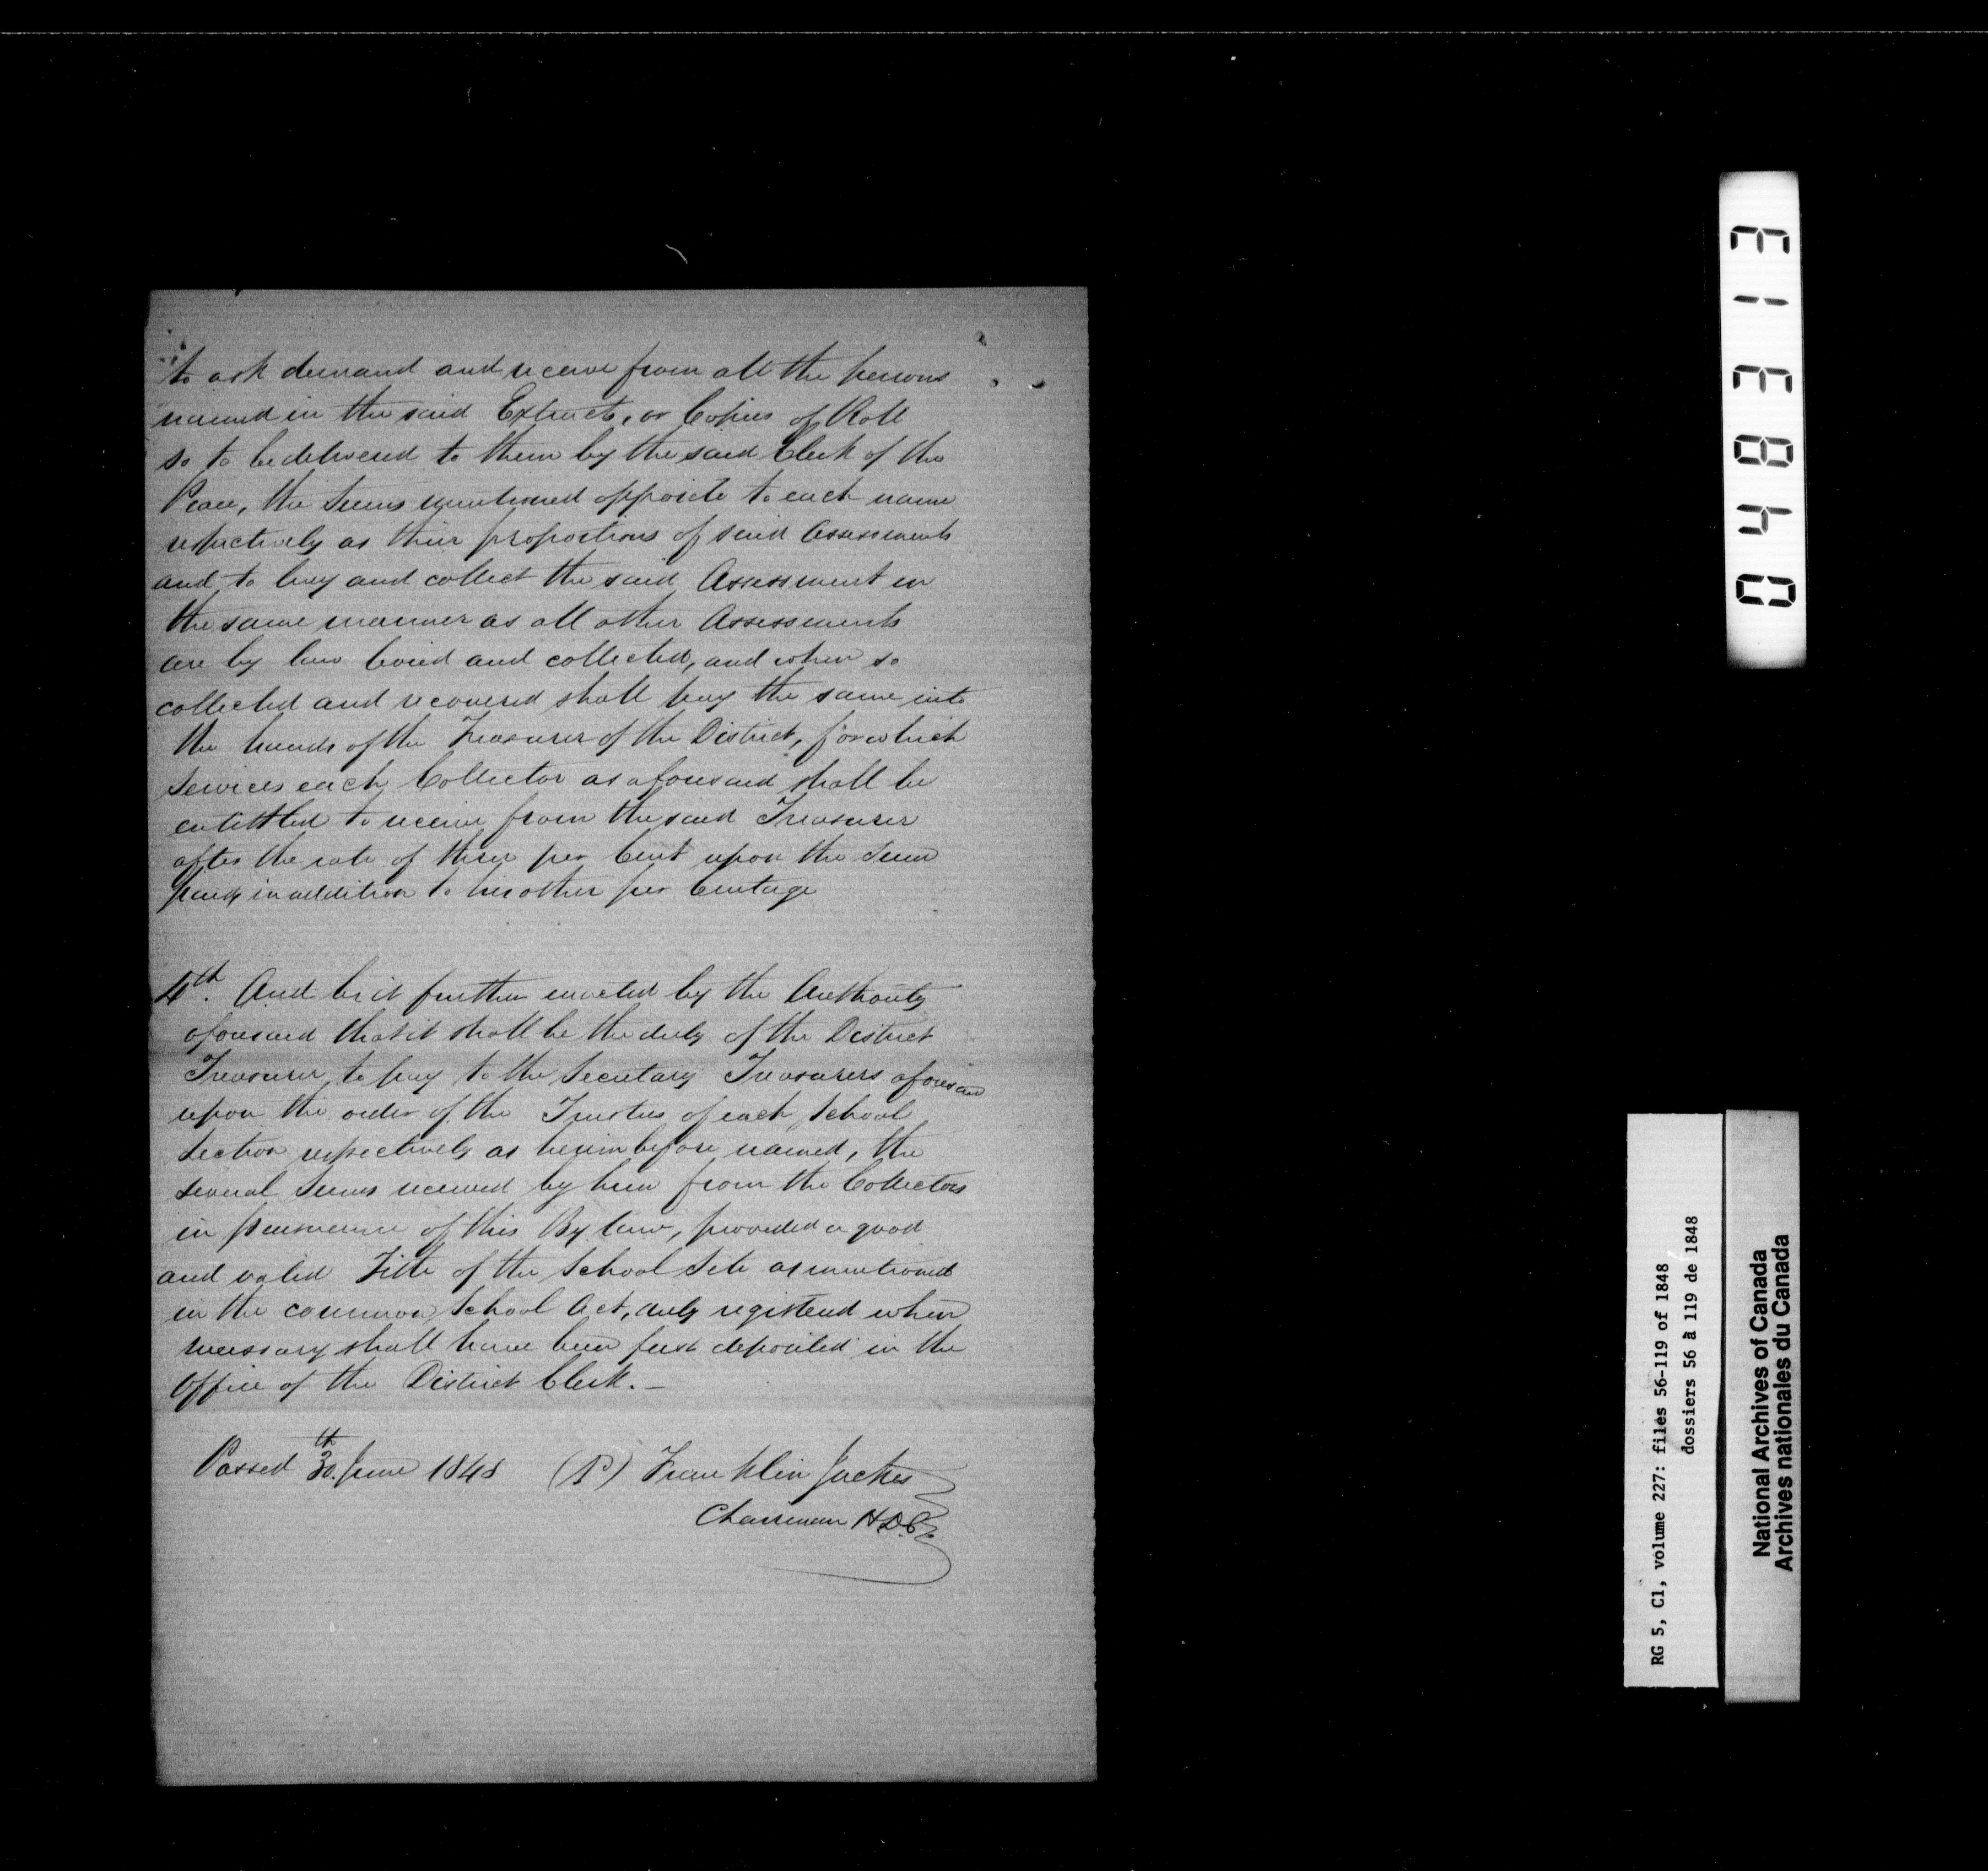 to ask demand and receive from all the persons
named in the said Extracts, or Copies of Roll
so to be delivered to them by the said Clerk of the
Peace, the Sums mentioned opposite to each name
respectively as their proportions of said Assessments
and to levy and collect the said Assessment in
the same manner as all other Assessments
are by law levied and collected, and when so
collected and recovered shall pay the same into
the hands of the Treasurer of the District, for which
Services each Collector as aforesaid shall be
entittled to receive from the said Treasurer
after the rate of three per Cent upon the Sum
paid in addition to his other per Centage
4th. And be it further enacted by the Authority
aforesaid that it shall be the duty of the District
Treasurer to pay to the Secretary Treasurers aforesaid
upon the order of the Trustees of each School
Section respectively as herein before named, the
several Sums received by him from the Collectors
in pursuance of this By law, provided a good
and valid Title of the School Site as mentioned
in the common School Act, duly registered when
necessary shall have been first deposited in the
Office of the District Clerk. —
Passed 30th. June 1848 Franklin Jackes
Chairman H.D.C.
04833 13
RG 5, C1, volume 227: files 56-119 of 1848
dossiers 56 à 119 de 1848
National Archives of Canada
Archives nationales du Canada